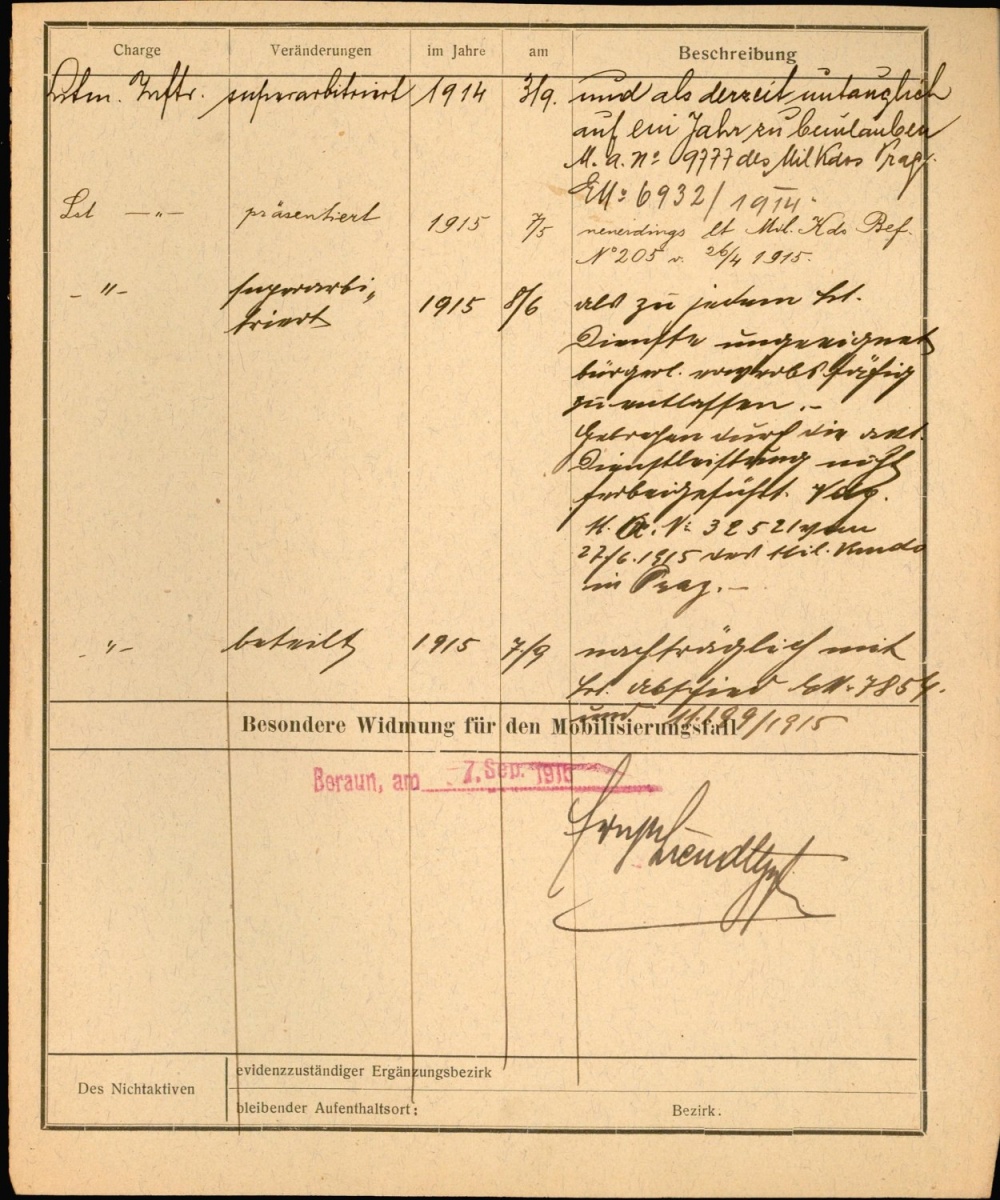 Charge Veränderungen im Jahre am Beschreibung
Lstm. Inftr. superarbitriert 1914 3/9. und als derzeit untauglich
auf ein Jahr zu beurlauben
M. a. No 9777 des Mil Kdos Prag.
ENo 6932/1914.
Lst —"— präsentiert 1915 7/5 neuerdings lt Mil. Kdo Bef.
No 205 v. 26/4 1915.
—"— superarbi„ 1915 8/6 als zu jedem Lst.
triert
Dienste ungeeignet
bürgerl. erwerbsfähig
zu entlassen.—
Gebrechen durch die akt.
Dienstleistung nicht
herbeigeführt.
M. A. No 32521 vom
27/6. 1915 des Mil. Kmdo
in Prag.—
—"— beteilt 1915 7/9 nachträglich mit
Lst. Abschied No 7854.
und 199/1915
Besondere Widmung für den Mobilisierungsfall
Beraun, am 7. Sep. 1915
Ernst
Des Nichtaktiven
evidenzzuständiger Ergänzungsbezirk
bleibender Aufenthaltsort: Bezirk.